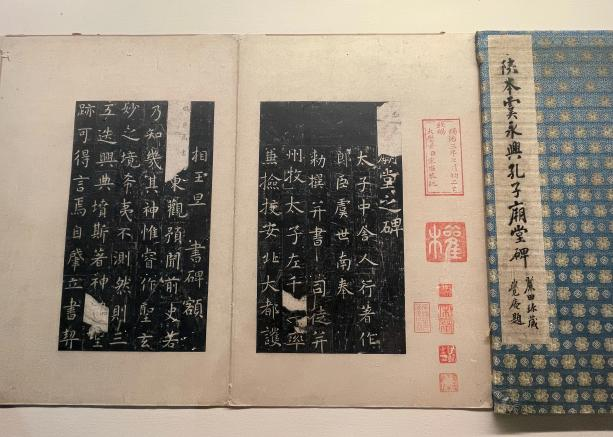 陝本虞永興孔子廟堂碑
田珍藏
題
廟堂之碑
太子中舍人行著作
郎臣虞世南奉
勅撰并書 司徒并
州牧太子左千 率
兼檢挍安北大都護
相王旦 書碑額
東觀預聞前史若
乃知幾其神惟睿作聖玄
妙之境希夷不測然則三
五迭興典墳斯著神 聖
跡可得言焉自肇立書契